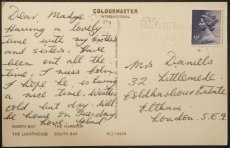 COLOURMASTER
INTERNATIONAL
Dear Madge
Having a lovely
time with my brother
and sisters. Have
been out all the
time. I miss being
I hope
a nice time. Weather
cold but dry. Will
be home on Tuesday
love
Mrs Daniels
32, Littlemede
Coldharbour Estate
Eltham
London. S.E.9.
NORTH BAY THE HARBOUR
THE LIGHTHOUSE SOUTH BAY